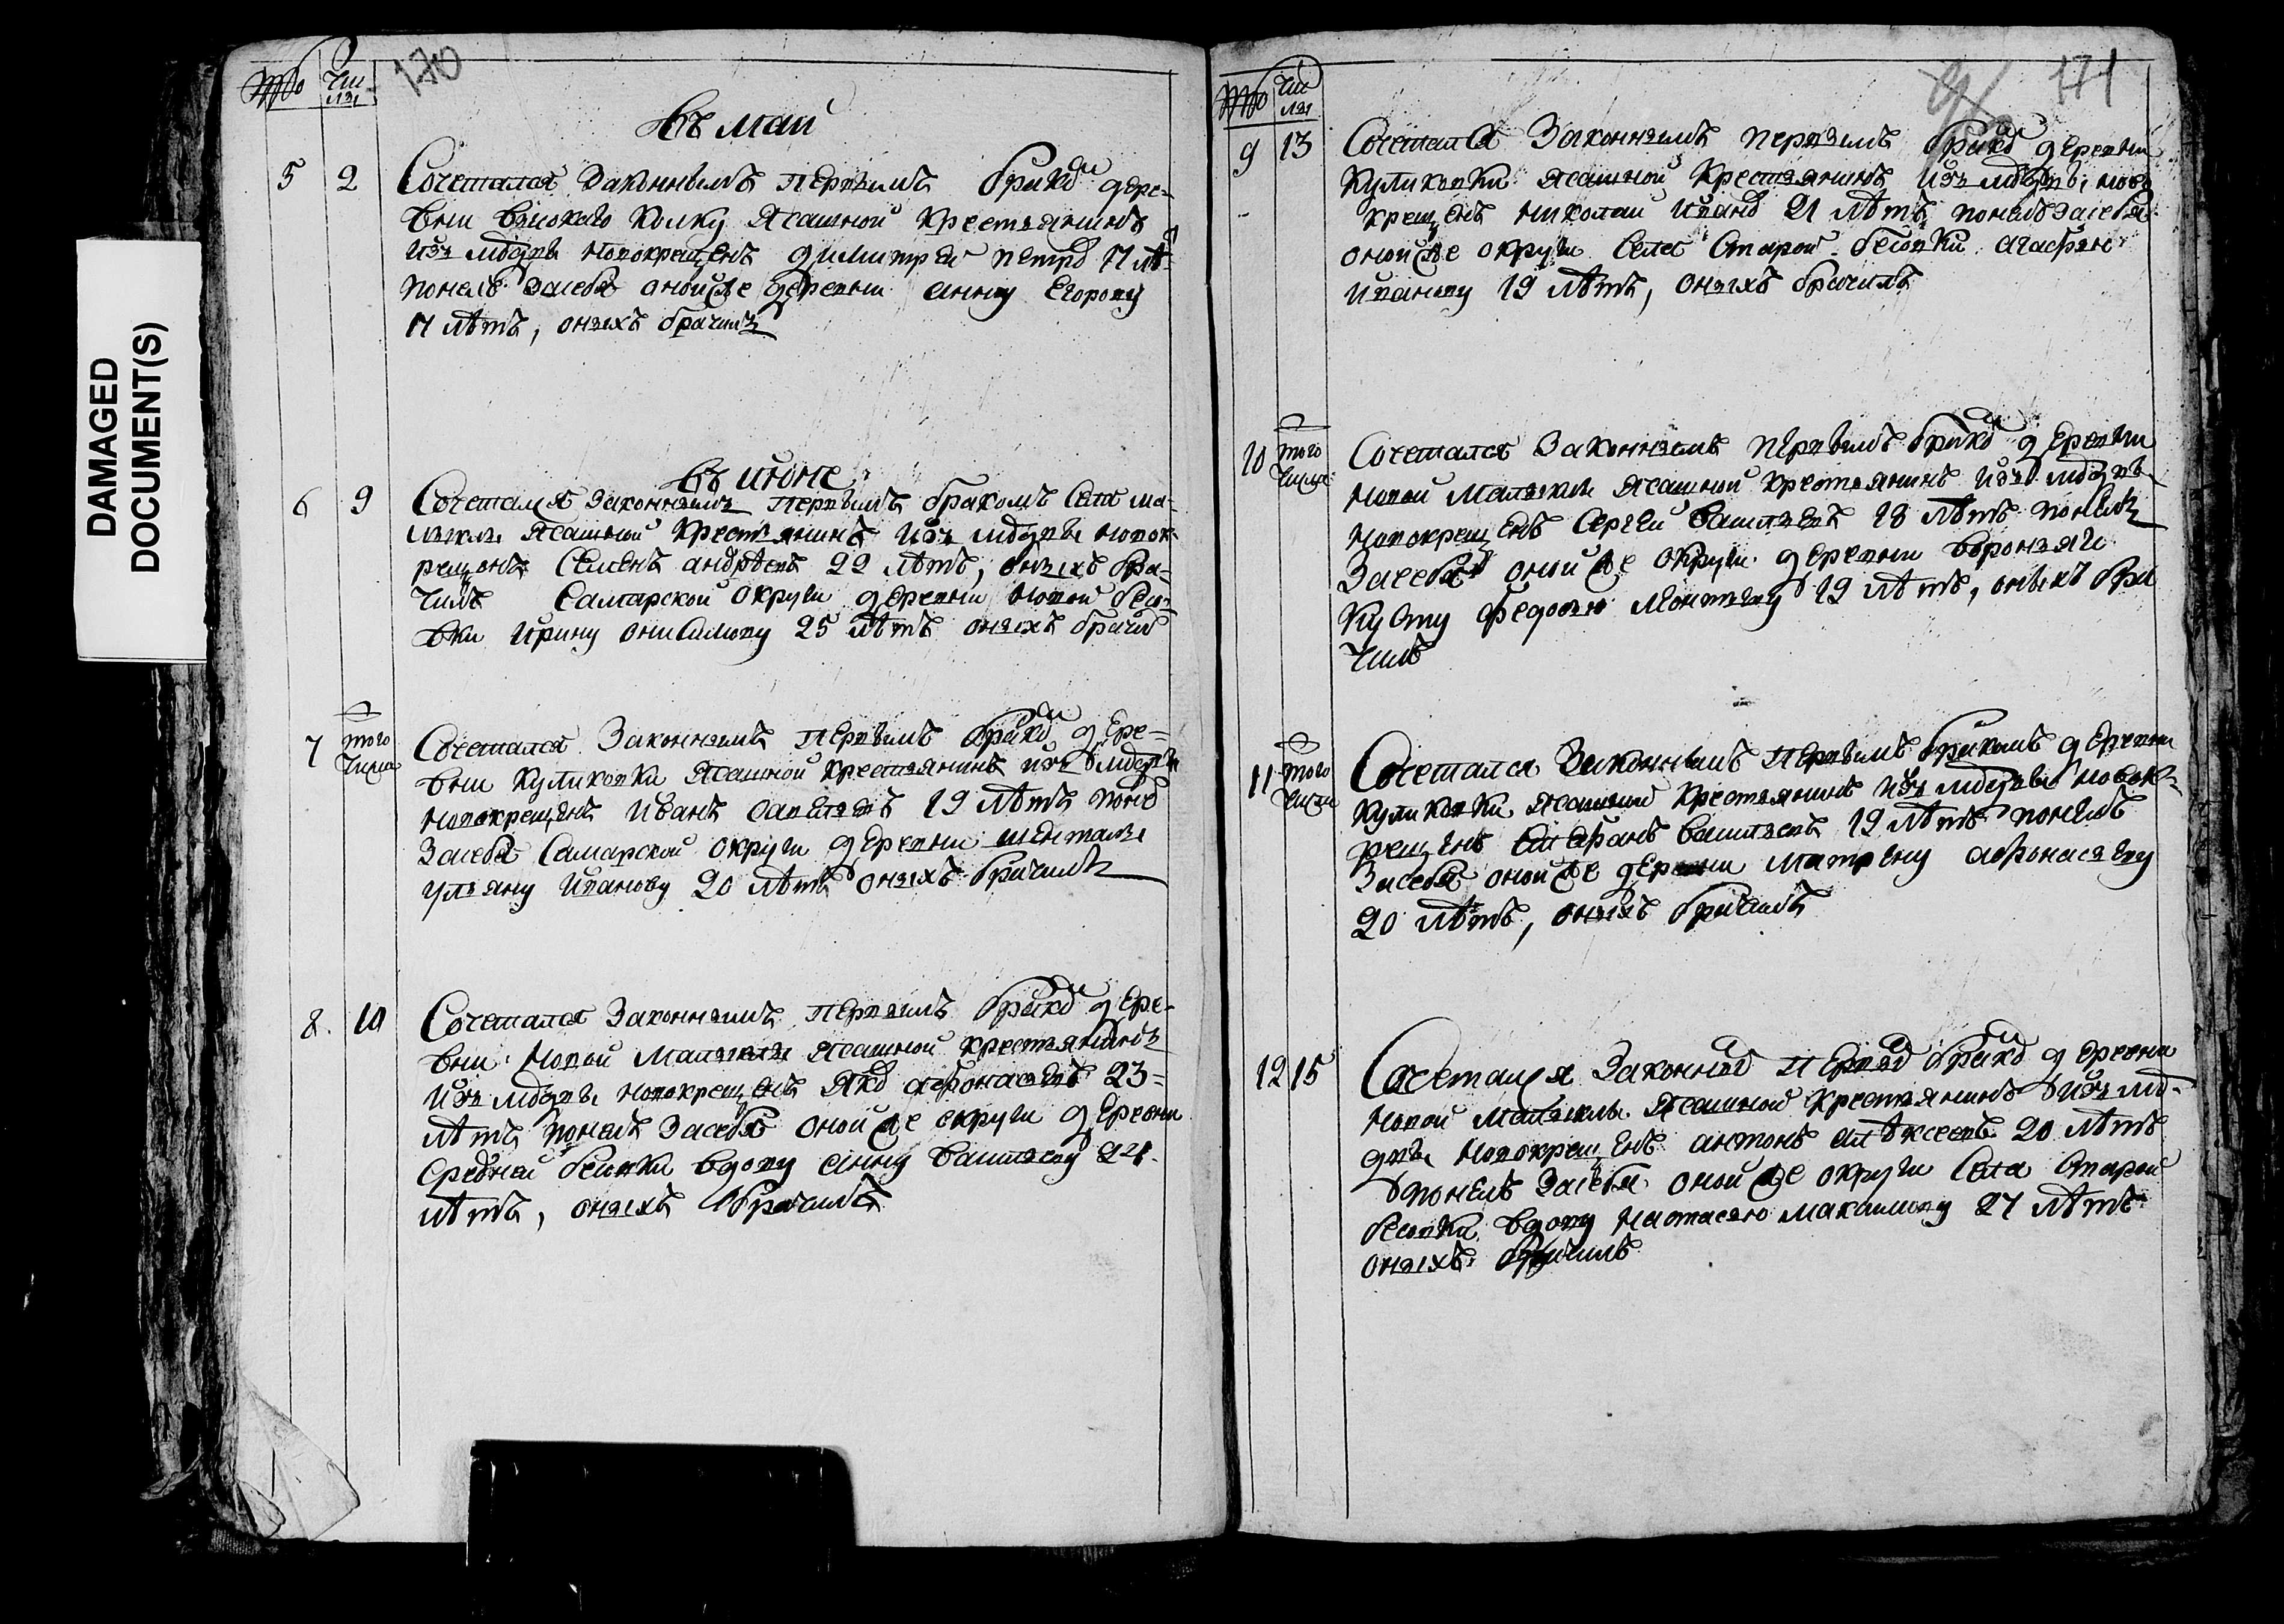 DAMAGED
DOCUMENT(S)
№ Чи
сла
170
въ маи
5 2 Сочетался Законнымъ первымъ бракомъ дере-
вни Ясашной крестьянинъ
изъ мордвы новокрещенъ димитреи петровъ 17 лѣ
понелъ засебя оной же деревни анну Егорову
17 лѣтъ, оныхъ брачилъ
въ июне
6 9 Сочетался законнымъ первымъ бракомъ Села ма-
лыклы Ясашной Крестьянинъ изъ мордвы новок-
рещенъ Семенъ андрѣевъ 22 лѣтъ, оныхъ бра-
чилъ Самарской округи деревни новой бесо-
вки Ирину онисимову 25 лѣтъ оныхъ брачил
7 того
числа Сочетался Законнымъ первымъ бракомъ дере-
вни куликовки Ясашной крестьянинъ изъ мордвы
новокрещенъ Иванъ савельевъ 19 лѣтъ понел
Засебя Самарской округи деревни шенталы
ульяну Иванову 20 лѣтъ оныхъ брачилъ
8. 10 Сочетался Законнымъ первымъ бракомъ дере-
вни новой Малыклы Ясашной крестьянинъ
Изъ мордвы новокрещенъ Яковъ афонасьевъ 23=
лѣтъ понелъ Засебя оной же округи деревни
Средней бесовки вдову анну васильеву 24
лѣтъ, оныхъ брачилъ
№ Чи
сла
171
9 13 Сочетался Законнымъ первымъ бракомъ деревни
Куликовки Ясашной крестьянинъ Изъ мордвы, ново
крещенъ николаи Ивановъ 21 лѣтъ понелъ засебя
оной же округи Села Старой бесовки агафью
Иванову 19 лѣтъ, оныхъ брачилъ
10 того
числа Сочетался Законнымъ первымъ бракомъ деревни
новой Малыклы Ясашной крестьянинъ изъ мордвы
новокрещенъ Сергеи васильевъ 18 лѣтъ понелъ
Засебя оной же округи деревни
федосью 19 лѣтъ, оныхъ бра
чилъ
11 того
числа Сочетался Законнымъ первымъ бракомъ деревни
куликовки Ясашной крестьянинъ изъ мордвы новок-
рещенъ Степанъ васильевъ 19 лѣтъ понелъ
Засебя оной же деревни матрену афонасьеву
20 лѣтъ, оныхъ брачилъ
12 15 Сочетался Законнымъ первымъ бракомъ деревни
новой малыклы Ясашной крестьянинъ изъ мор-
двы новокрещенъ антонъ алѣксеевъ 20 лѣтъ
понелъ Засебя оной же округи Села Старой
бесовки вдову настасью максимову 27 лѣтъ
оныхъ брачилъ